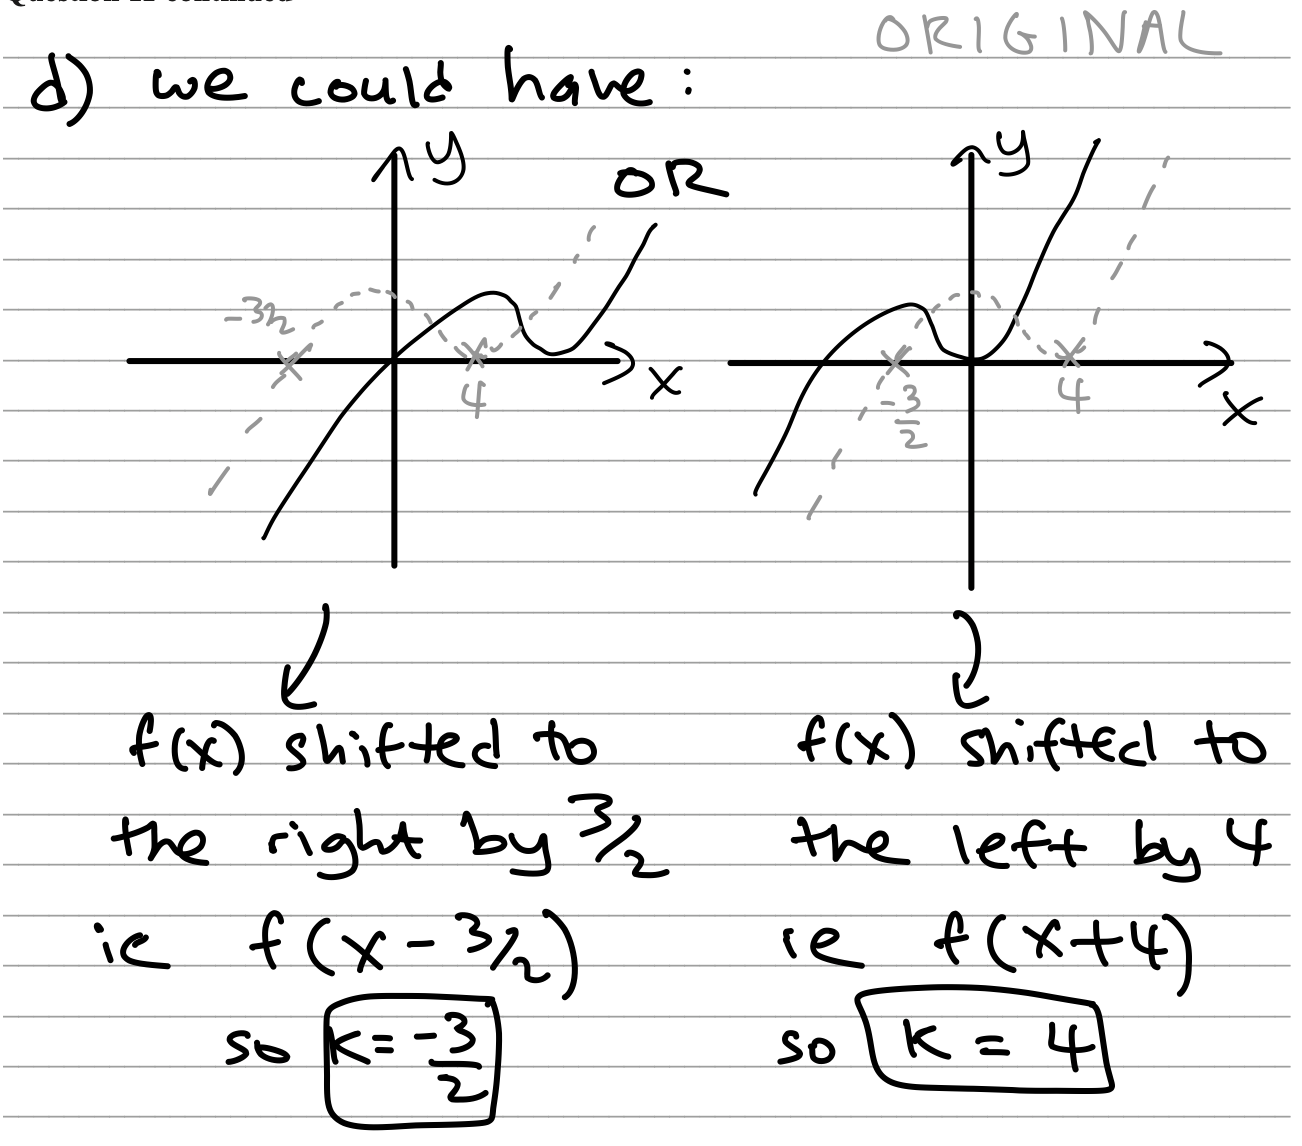 ORIGINAL
d) we could have :
y
OR
y
-3/2
x
4
-3/2
4
x
f(x) shifted to
the right by 3/2
ie f(x - 3/2)
so k = -3/2
f(x) shifted to
the left by 4
ie f(x+4)
so k = 4